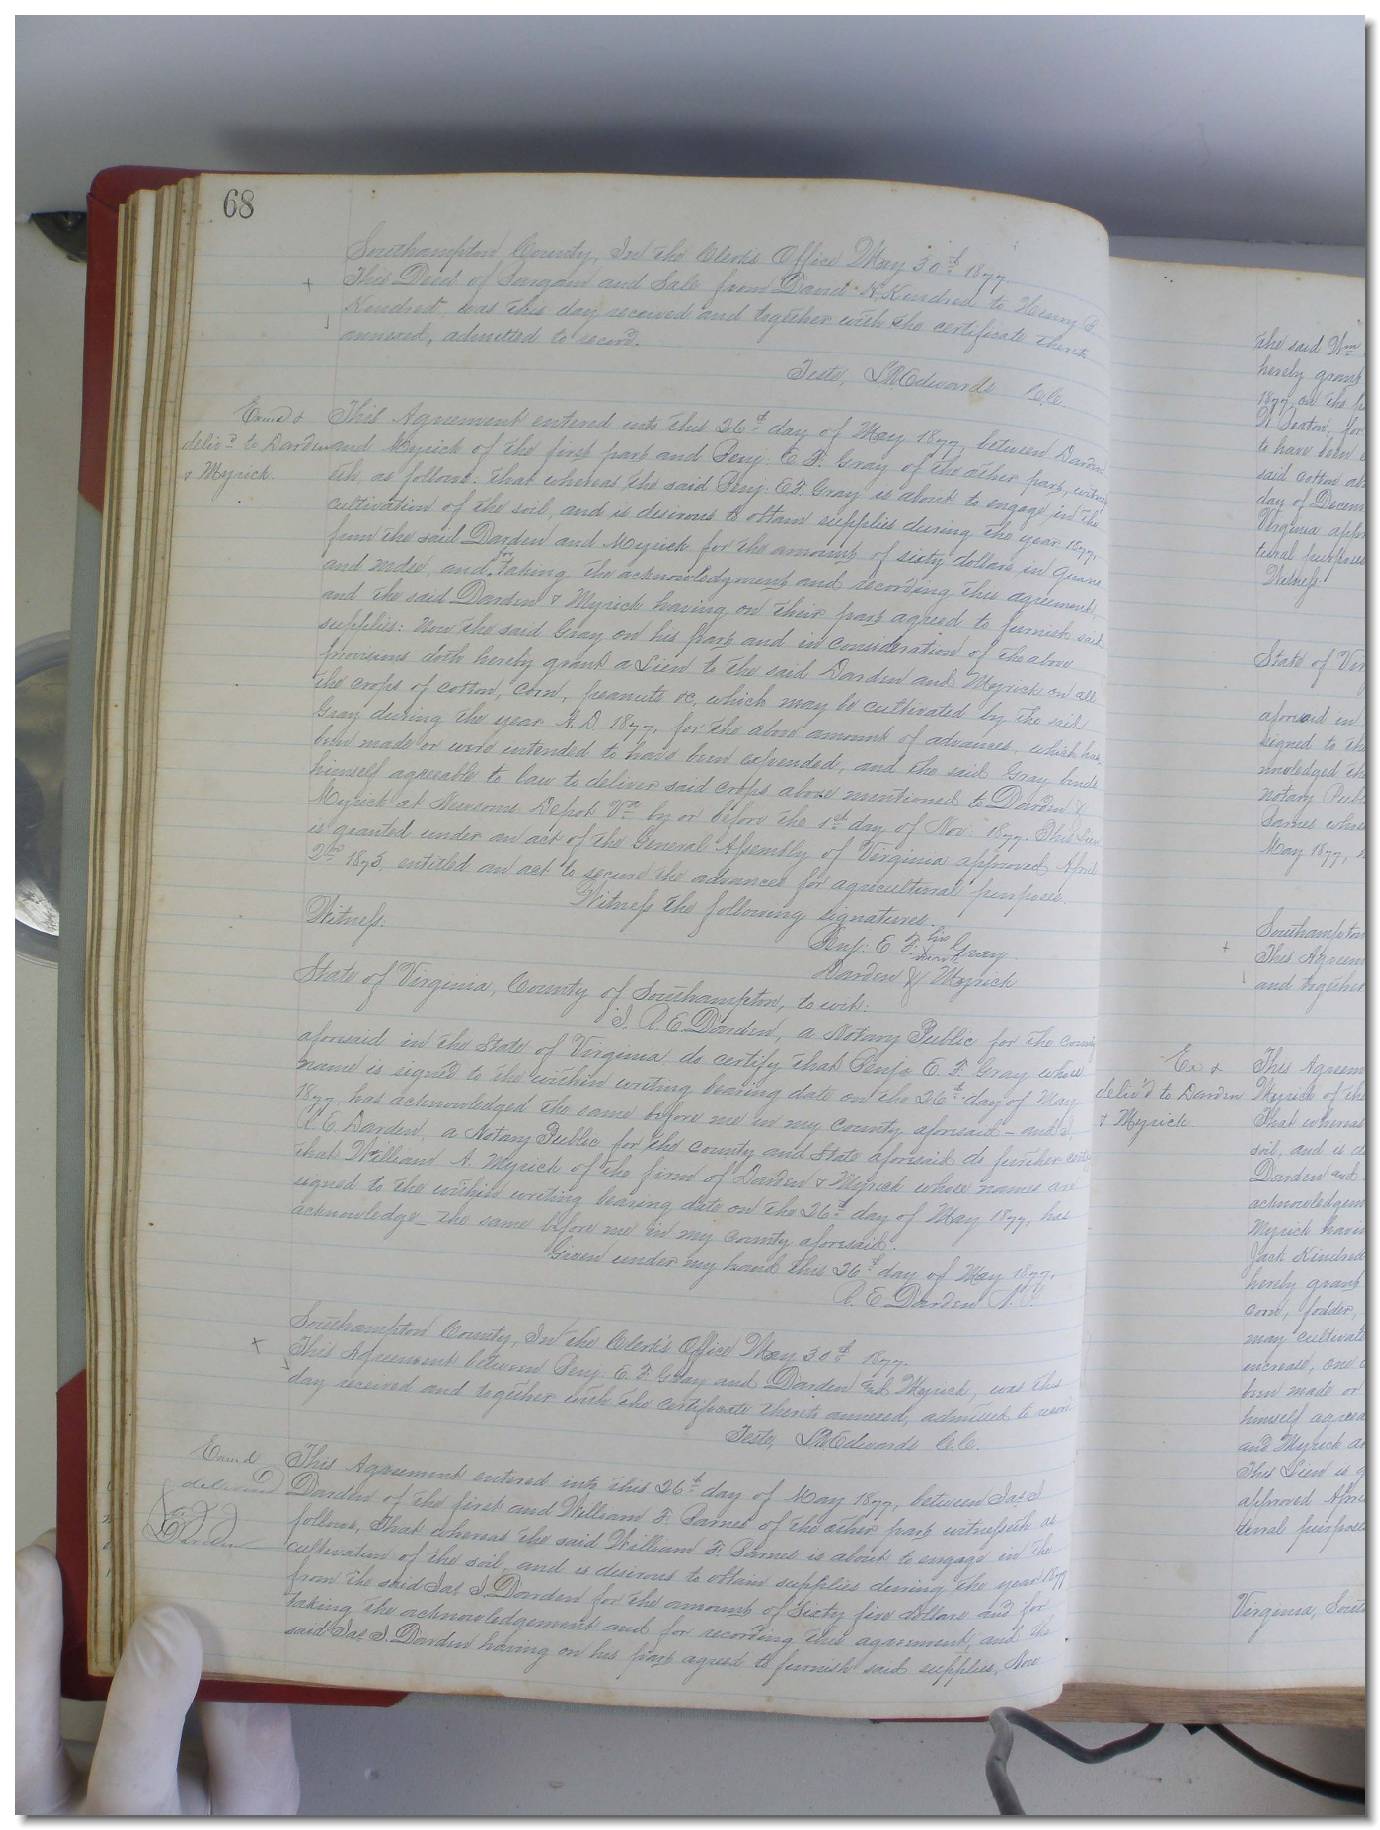 68
Southampton County, In the Clerk's Office May 30th 1877.
This Deed of Bargain and Sale from David K. Kindred to Henry B.
Kindred, was this day received and together with the certificate thereto
annexed, admitted to record.
Teste, L R Edwards C.C.
Exmd &
deliv'd to Darden
& Myrick.
This Agreement entered into this 26th day of May 1877, between Darden
and Myrick of the first part and Benj. E. F. Gray of the other part, witness
eth, as follows: that whereas the said Benj. E. F. Gray is about to engage in the
cultivation of the soil, and is desirous to obtain supplies during the year 1877,
from the said Darden and Myrick for the amount of sixty dollars in guano
and mdse, and for taking the acknowledgment and recording this agreement,
and the said Darden & Myrick having on their part agreed to furnish said
supplies: Now the said Gray on his part and in consideration of the above
provisions doth hereby grant a Lien to the said Darden and Myrick on all
the crops of cotton, corn, peanuts &c, which may be cultivated by the said
Gray during the year A.D. 1877, for the above amount of advances, which has
been made or were intended to have been expended, and the said Gray binds
himself agreeable to law to deliver said crops above mentioned to Darden &
Myrick at Newsoms Depot Va by or before the 1st day of Nov. 1877. This Lien
is granted under an act of the General Assembly of Virginia approved April
2nd 1873, entitled an act to secure the advances for agricultural purposes.
Witness the following signatures.
Witness.
Benj: E. F. his mark Gray
Darden & Myrick
State of Virginia, County of Southampton, to wit:
I. R. E. Darden, a Notary Public for the County
aforesaid in the State of Virginia, do certify that Benj. E. F. Gray whose
name is signed to the within writing bearing date on the 26th day of May
1877, has acknowledged the same before me in my County aforesaid – and I,
R. E. Darden, a Notary Public for the County and State aforesaid do further certify
that William A. Myrick of the firm of Darden & Myrick whose names are
signed to the within writing bearing date on the 26th day of May 1877, has
acknowledge_ the same before me in my County aforesaid.
Given under my hand this 26th day of May 1877.
R. E. Darden N.P.
Southampton County, In the Clerk's Office May 30th 1877.
This Agreement between Benj. E. F. Gray and Darden and Myrick, was this
day received and together with the certificate thereto annexed, admitted to record.
Teste, L R Edwards C.C.
Exmd
delivered
This Agreement entered into this 26th day of May 1877, between Jas. J.
Darden of the first and William F. Barnes of the other part witnesseth as
follows, That whereas the said William F. Barnes is about to engage in the
cultivation of the soil, and is desirous to obtain supplies during the year 1877
from the said Jas. J. Darden for the amount of Sixty five dollars and for
taking the acknowledgement and for recording this agreement, and the
said Jas. J. Darden having on his part agreed to furnish said supplies, Now
the said Wm
hereby grant
1877, on the
to have been
said cotton
day of Decem
Virginia appr
tural purposes
Witness:
State of Vir
aforesaid in
signed to the
nowledged the
Notary Publ
James whos
May 1877,
Southampton
This Agreem
and together
Ex &
deliv'd to Darden
& Myrick
This Agreem
Myrick of the
That whereas
soil, and is
Darden and
acknowledgem
Myrick havin
Jack Kindred
hereby grant
corn, fodder,
may cultivate
increase, one
been made or
himself agrea
and Myrick
This Lien is
approved Apri
tural purposes
Virginia, South